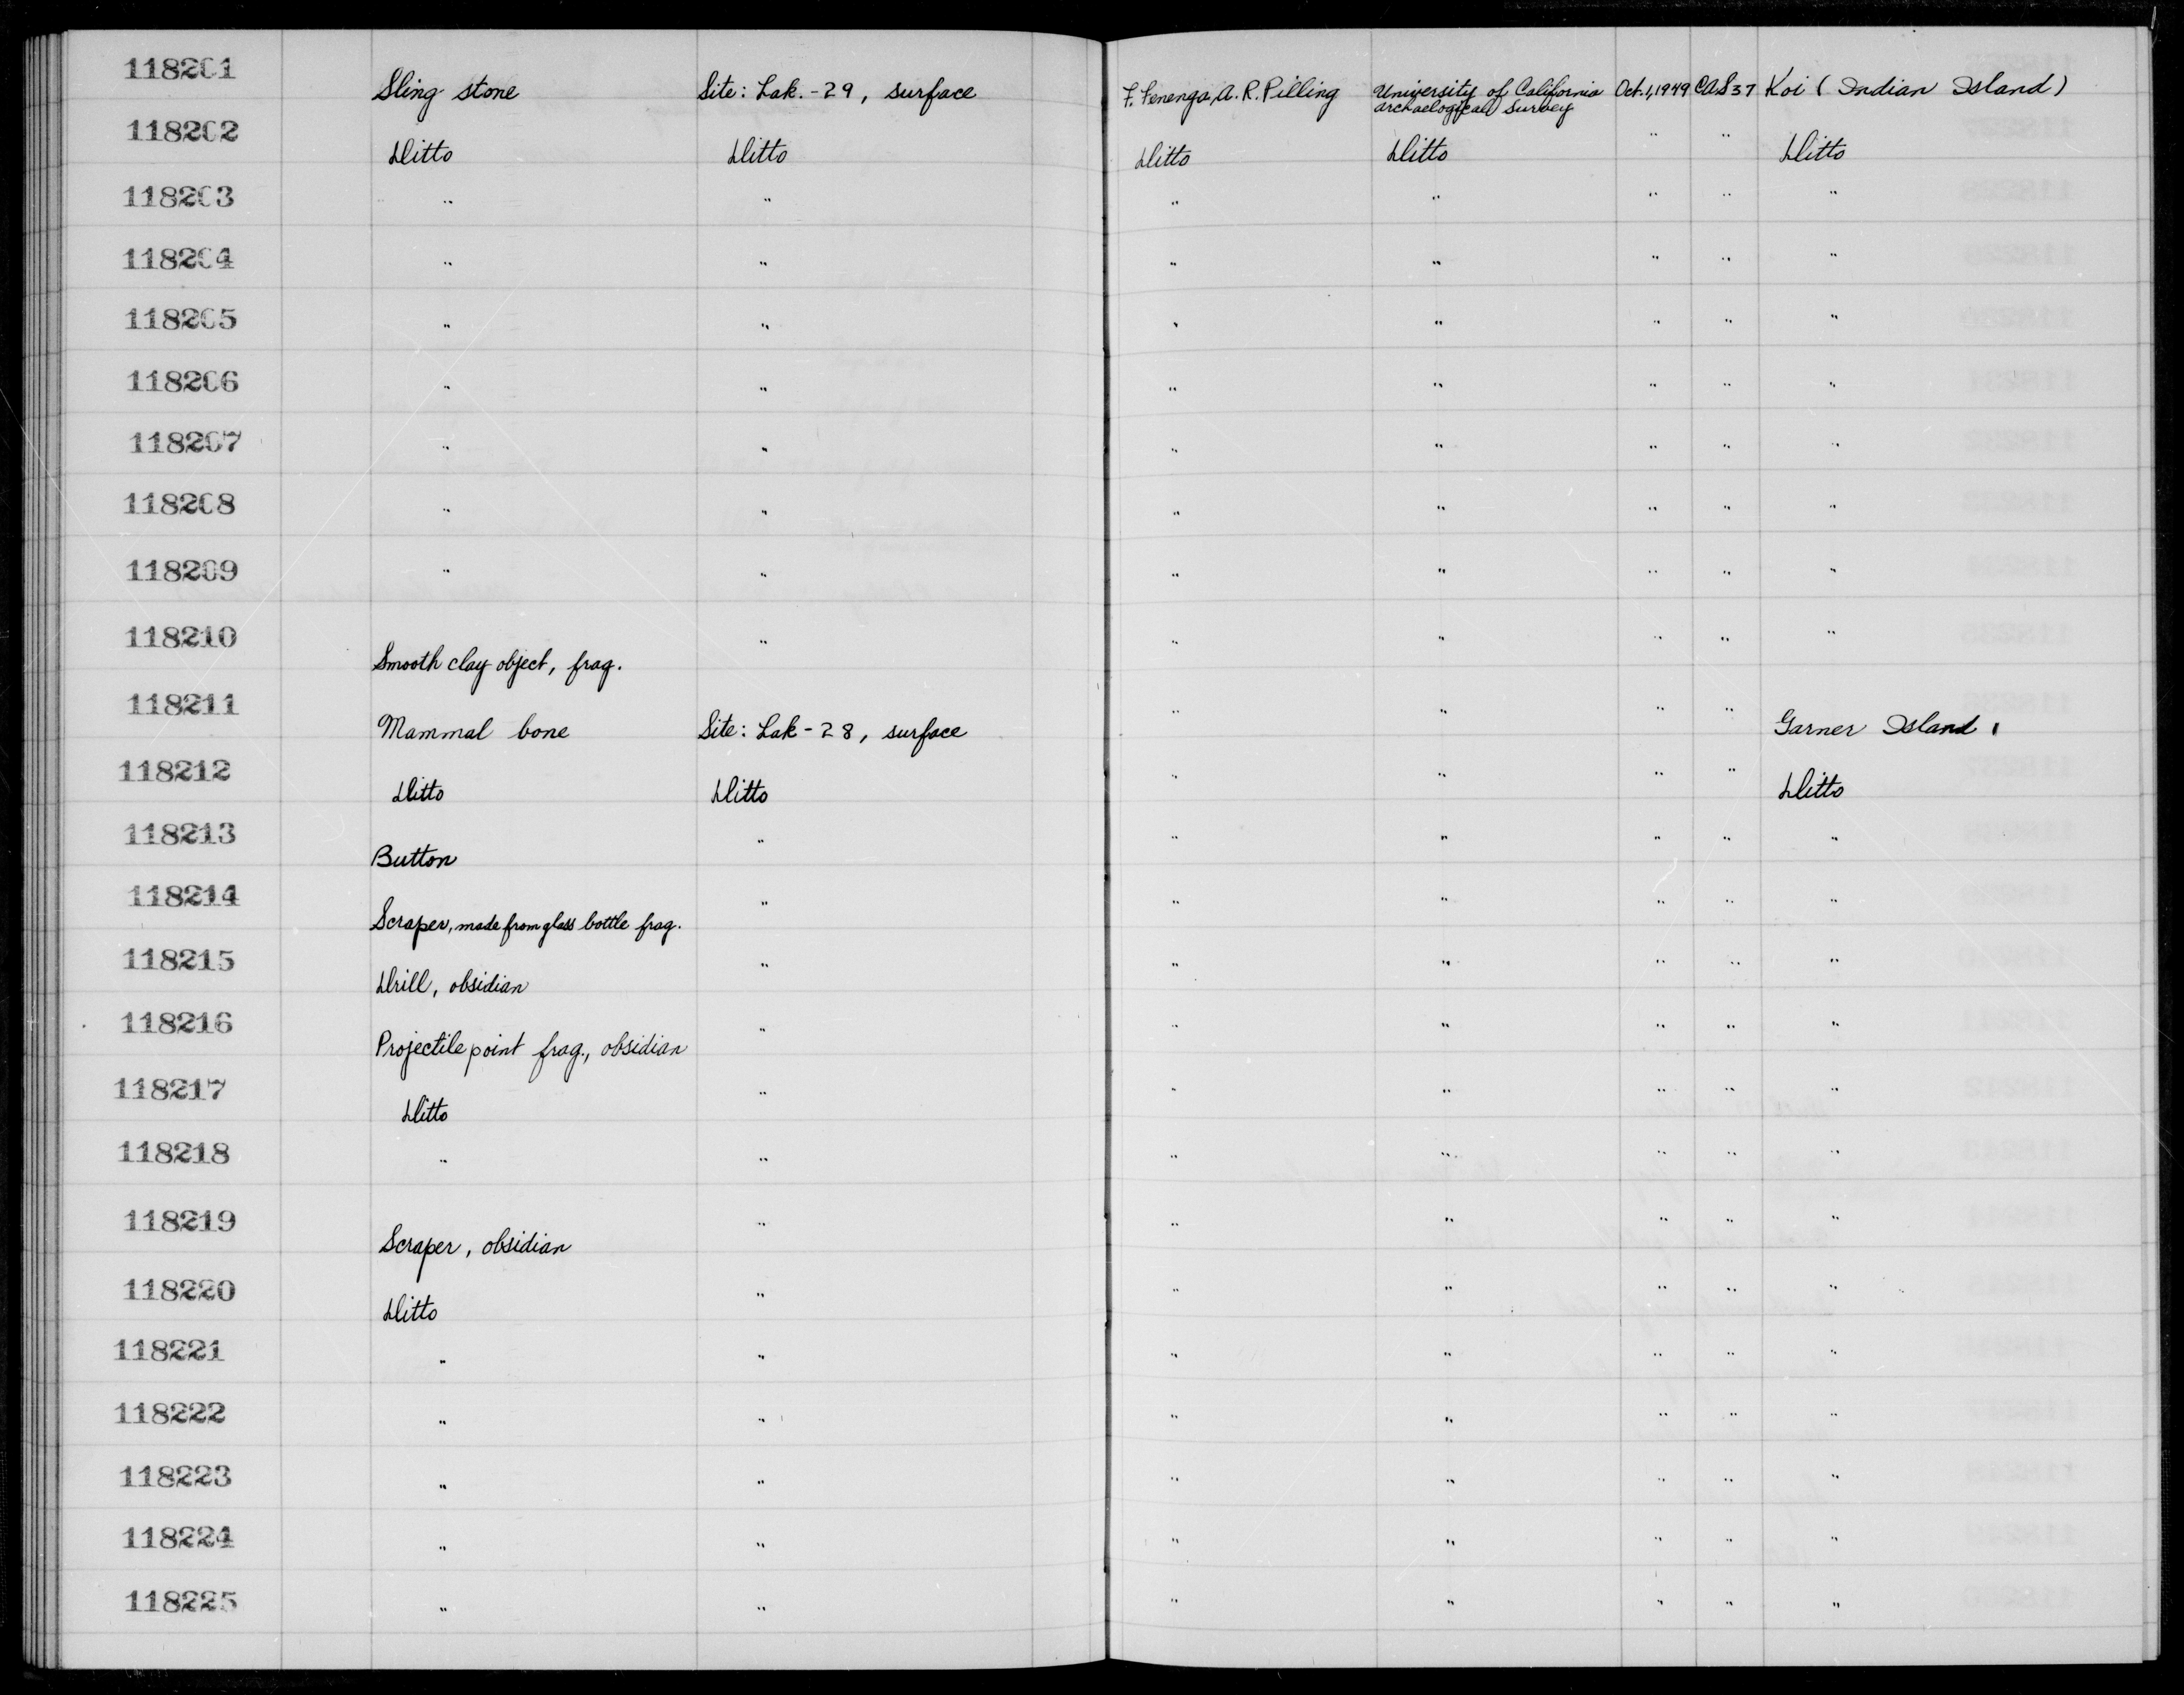 118201 Sling stone Site: Lak.-29, surface F. Fenenga, A. R. Pilling University of California Oct. 1, 1949 CAS 37 Koi (Indian Island)
archaelogical Survey
118202 Ditto Ditto Ditto Ditto " " Ditto
118203 " " " " " " "
118204 " " " " " " "
118205 " " " " " " "
118206 " " " " " " "
118207 " " " " " " "
118208 " " " " " " "
118209 " " " " " " "
118210 Smooth clay object, frag. " " " " " "
118211 Mammal bone Site: Lak-28, surface " " " " Garner Island
118212 Ditto Ditto " " " " Ditto
118213 Button " " " " " "
118214 Scraper, made from glass bottle frag. " " " " " "
118215 Drill, obsidian " " " " " "
118216 Projectile point frag., obsidian " " " " " "
118217 Ditto " " " " " "
118218 " " " " " " "
118219 Scraper, obsidian " " " " " "
118220 Ditto " " " " " "
118221 " " " " " " "
118222 " " " " " " "
118223 " " " " " " "
118224 " " " " " " "
118225 " " " " " " "